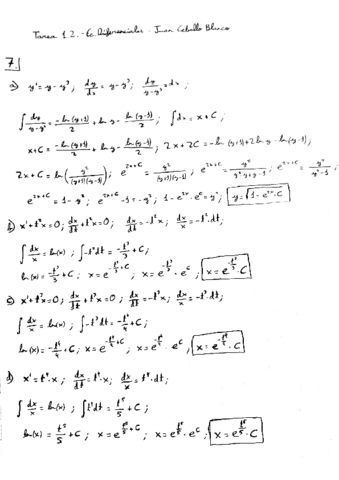 Tarea 1.2. - Ec. Diferenciales - Juan Ceballo Blanco
7.
a) y' = y - y³ ; dy/dx = y - y³ ; dy/(y-y³) = dx ;
∫ dy/(y-y³) = -ln(y+1)/2 + ln y - ln(y-1)/2 ; ∫dx = x + C ;
x+C = -ln(y+1)/2 + ln y - ln(y-1)/2 ; 2x + 2C = -ln(y+1) + 2 ln y - ln(y-1) ;
2x + C = ln(y²/((y+1)(y-1))) ; e^(2x+C) = y²/((y+1)(y-1)) ; e^(2x+C) = y²/(y²-y+y-1) ; e^(2x+C) = y²/(y²-1)
b) x' + t²x = 0 ; dx/dt + t²x = 0 ; dx/dt = -t²x ; dx/x = -t²dt ;
∫ dx/x = ln(x) ; ∫-t²dt = -t³/3 + C ;
ln(x) = -t³/3 + C ; x = e^(-t³/3 + C) ; x = e^(-t³/3) · e^C ; x = e^(-t³/3) · C
∫ dx/x = ln(x) ; ∫-t³dt = -t⁴/4 + C ;
ln(x) = -t⁴/4 + C ; x = e^(-t⁴/4 + C) ; x = e^(-t⁴/4) · e^C ; x = e^(-t⁴/4) · C
d) x' = t⁴·x ; dx/dt = t⁴·x ; dx/x = t⁴·dt ;
∫ dx/x = ln(x) ; ∫t⁴dt = t⁵/5 + C ;
ln(x) = t⁵/5 + C ; x = e^(t⁵/5 + C) ; x = e^(t⁵/5) · e^C ; x = e^(t⁵/5) · C